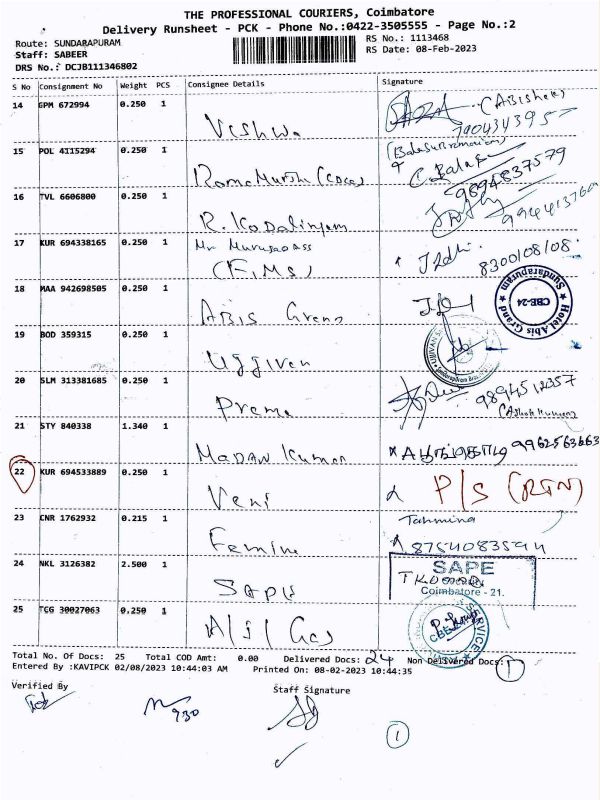 THE PROFESSIONAL COURIERS, Coimbatore
Delivery Runsheet - PCK - Phone No.:0422-3505555 - Page No.:2
Route: SUNDARAPURAM
RS No.: 1113468
Staff: SABEER
RS Date: 08-Feb-2023
DRS No.: DCJB111346802
S No Consignment No Weight PCS Consignee Details Signature
14 GPM 672994 0.250 1 Vishwa (Abishek)
15 POL 4115294 0.250 1 (Balasubramanian)
9894837579
16 TVL 6606800 0.250 1
17 KUR 694338165 0.250 1 Mr Murugadass
(F.I.M.S) 8300108108
18 MAA 942698505 0.250 1 ABIS Grand
Hotel Abis Grand
Sundarapuram
CBE-24
19 BOD 359315 0.250 1 Ujjivan
20 SLM 313381685 0.250 1 Prema
9894512357
21 STY 840338 1.340 1 Madan Kumar
22 KUR 694533889 0.250 1 Veni P/S (RTN)
23 CNR 1762932 0.215 1 Femine Tahmina
8754083594
24 NKL 3126382 2.500 1 Sape
SAPE
Coimbatore - 21.
25 TCG 30027063 0.250 1 A/S/ Gas
Total No. Of Docs: 25 Total COD Amt: 0.00 Delivered Docs: 24 Non Delivered Docs: 1
Entered By :KAVIPCK 02/08/2023 10:44:03 AM Printed On: 08-02-2023 10:44:35
Verified By
Staff Signature
930
1